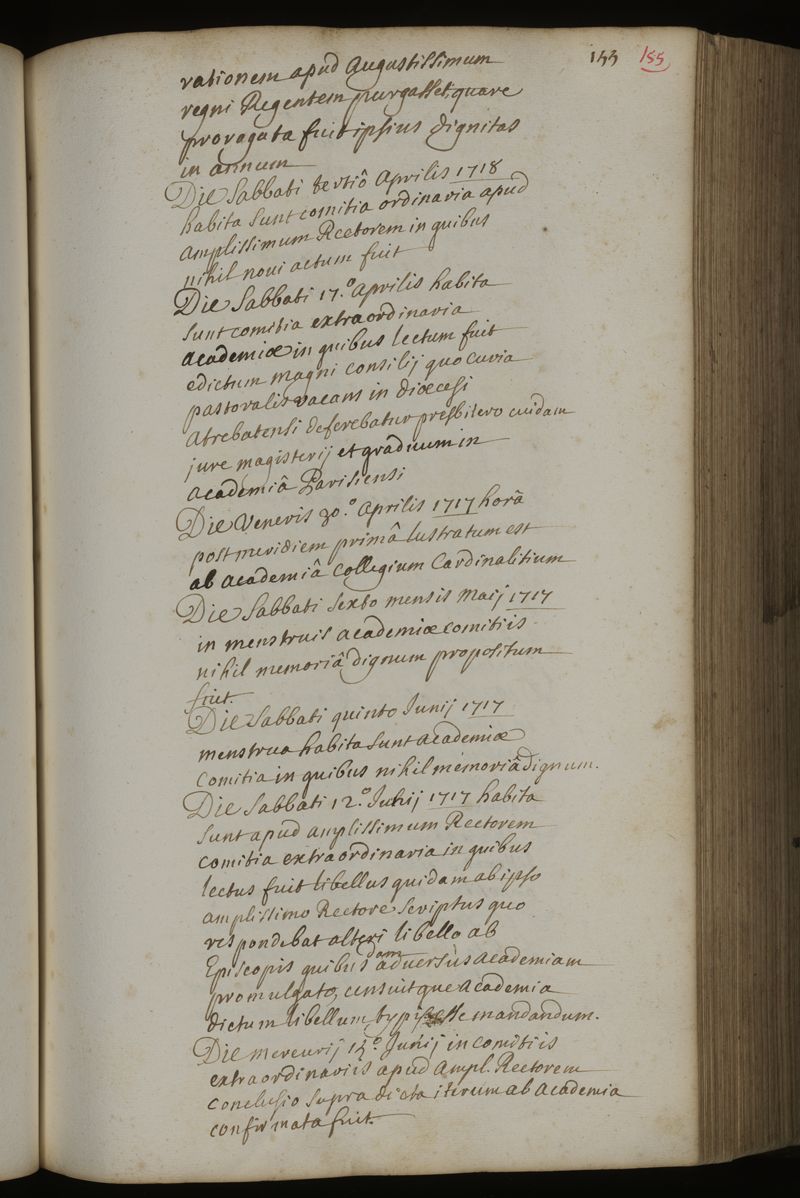 153 155
rationem apud Augustissimum
regni Regentem purgasset, quare
proragata fuit ipsius dignitas
in annum
Die Sabbati tertiô Aprilis 1718
habita sunt comitia ordinaria apud
amplissimum Rectorem in quibus
nihil noui actum fuit
Die Sabbati 17.º aprilis habita
sunt comitia extraordinaria
academiæ in quibus lectum fuit
edictum magni consilij quo curia
pastoralis vacans in diœcesi
atrebatensi deferebatur presbitero cuidam
jure magisterij et graduum in
academiâ Parisiensi
Die Veneris 30.º Aprilis 1717 horâ
post meridiem primâ lustratum est
ab academiâ Collegium Cardinalitium
Die Sabbati sexto mensis Maij 1717
in menstruis academiæ comitiis
nihil memoriâ dignum propositum
fuit.
Die Sabbati quinto Junij 1717
menstrua habita sunt academiæ
comitia in quibus nihil memoriâ dignum.
Die Sabbati 12.º Junij 1717 habita
sunt apud amplissimum Rectorem
comitia extraordinaria in quibus
lectus fuit libellus quidam ab ipso
amplissimo Rectore scriptus quo
respondebat alteri libello ab
Episcopis quibusdam aduersùs academiam
promulgato, censuitque academia
dictum libellum typis esse mandandum.
Die mercurij Junij in comitiis
extraordinariis apud ampl. Rectorem
conclusio supra dicta iterum ab academia
confirmata fuit.